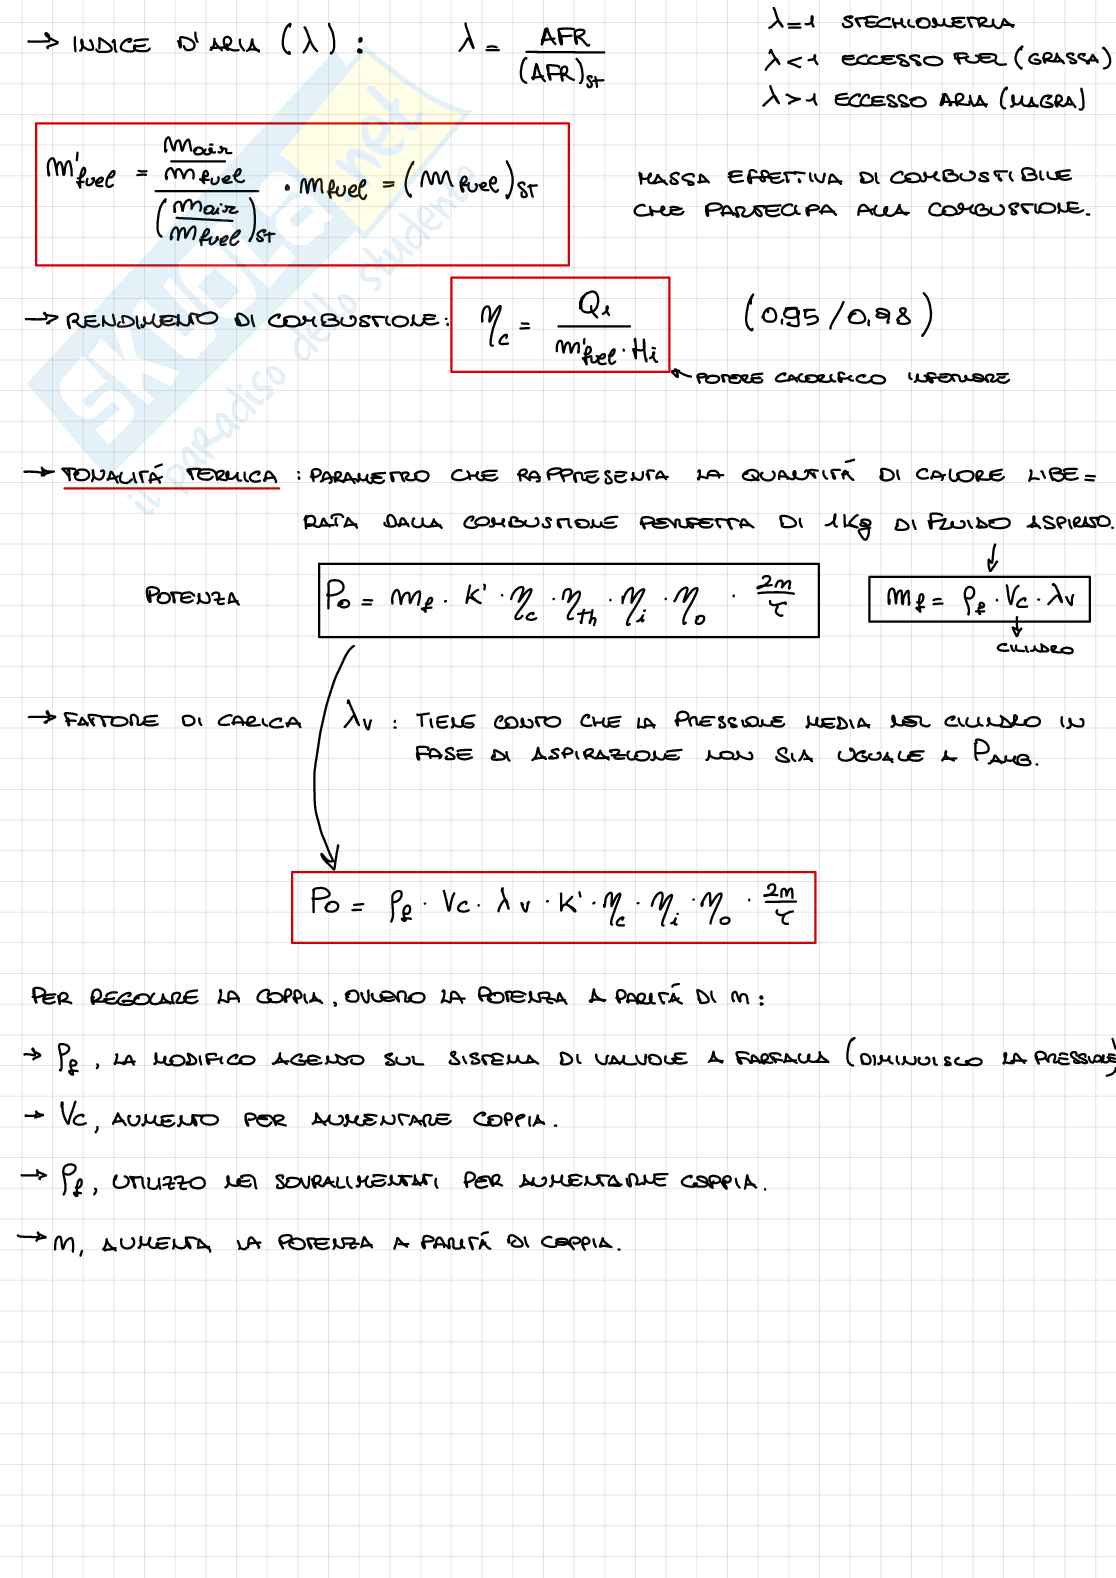 → INDICE D'ARIA (λ) : λ = AFR / (AFR)ST
λ=1 STECHIOMETRIA
λ<1 ECCESSO FUEL (GRASSA)
λ>1 ECCESSO ARIA (MAGRA)
m'fuel = (mair / mfuel) / (mair / mfuel)ST · mfuel = (mfuel)ST
MASSA EFFETTIVA DI COMBUSTIBILE
CHE PARTECIPA ALLA COMBUSTIONE.
→ RENDIMENTO DI COMBUSTIONE: ηc = Q1 / m'fuel · Hi (0.95/0.98)
POTERE CALORIFICO INFERIORE
→ TONALITÁ TERMICA : PARAMETRO CHE RAPPRESENTA LA QUANTITÁ DI CALORE LIBE=
RATA DALLA COMBUSTIONE PERFETTA DI 1Kg DI FLUIDO ASPIRATO.
POTENZA P0 = mf · K' · ηc · ηth · ηi · ηo · 2n/τ
mf = ρf · Vc · λv
CILINDRO
→ FATTORE DI CARICA λv : TIENE CONTO CHE LA PRESSIONE MEDIA NEL CILINDRO IN
FASE DI ASPIRAZIONE NON SIA UGUALE A PAMB.
P0 = ρf · Vc · λv · K' · ηc · ηi · ηo · 2n/τ
PER REGOLARE LA COPPIA, OVVERO LA POTENZA A PARITÁ DI n:
→ ρf, LA MODIFICO AGENDO SUL SISTEMA DI VALVOLE A FARFALLA (DIMINUISCO LA PRESSIONE)
→ Vc, AUMENTO PER AUMENTARE COPPIA.
→ ρf, UTILIZZO NEI SOVRALIMENTATI PER AUMENTARNE COPPIA.
→ n, AUMENTA LA POTENZA A PARITÁ DI COPPIA.
SKUOLA.net
il paradiso dello studente